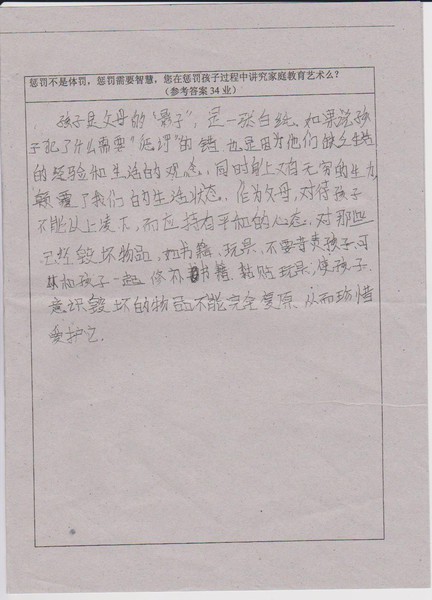 惩罚不是体罚，惩罚需要智慧，您在惩罚孩子过程中讲究家庭教育艺术么？
（参考答案 34 业）
孩子是父母的"影子"，是一张白纸。如果说孩
子犯了什么需要"惩罚"的错，也是因为他们缺乏生活
的经验和生活的观念，同时身上又有无穷的生力
颠覆了我们的生活状态。作为父母，对待孩子
不能以上凌下，而应持有平和的心态，对那些
已经毁坏物品，如书籍、玩具，不要责孩子，可
和孩子一起修补书籍、黏贴玩具，使孩子
意识毁坏的物品不能完全复原，从而珍惜
爱护它.